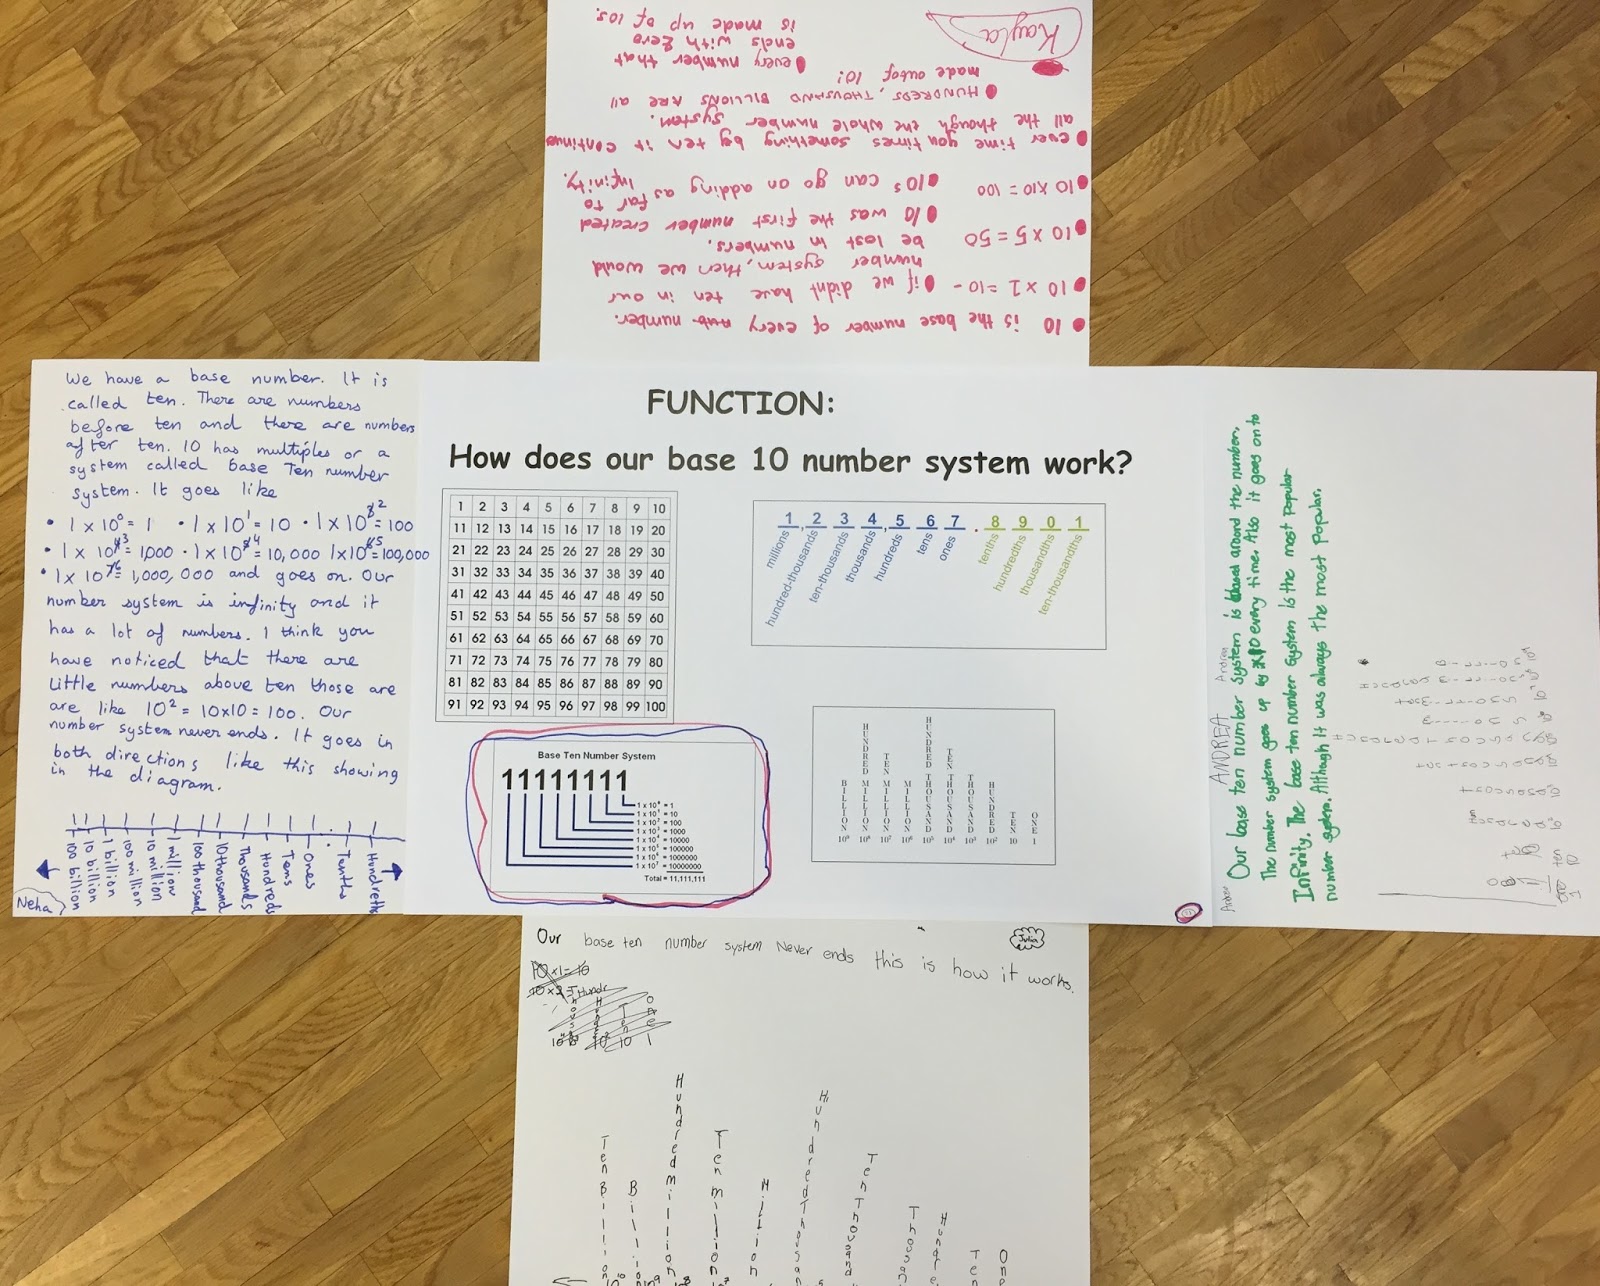 Kayla
● 10 is the base number of every number.
● 10 x 1 = 10 -
● if we didnt have ten in our
number system, then we would
be lost in numbers.
● 10 x 5 = 50
● 10 was the first number created
● 10 x 10 = 100
● 10s can go on adding as far to
Infinity.
● ever time you times something by ten it continue
all the though the whole number system.
● HUNDREDS, THOUSAND BILLIONS ARE all
made out of 10!
● every number that
ends with zero
is made up of 10s.
We have a base number. It is
called ten. There are numbers
before ten and there are numbers
after ten. 10 has multiples or a
system called base Ten number
system. It goes like
• 1 x 10⁰ = 1 • 1 x 10¹ = 10 • 1 x 10² = 100
• 1 x 10³ = 1,000 • 1 x 10⁴ = 10,000 1 x 10⁵ = 100,000
• 1 x 10⁶ = 1,000,000 and goes on. Our
number system is infinity and it
has a lot of numbers. I think you
have noticed that there are
little numbers above ten those are
are like 10² = 10x10 = 100. Our
number system never ends. It goes in
both directions like this showing
in the diagram.
100 billion
10 billion
1 billion
100 million
10 million
1 million
100 thousand
10 thousand
Thousands
Hundreds
Tens
Ones
Tenths
Hundreths
Neha
FUNCTION:
How does our base 10 number system work?
1 2 3 4 5 6 7 8 9 10
11 12 13 14 15 16 17 18 19 20
21 22 23 24 25 26 27 28 29 30
31 32 33 34 35 36 37 38 39 40
41 42 43 44 45 46 47 48 49 50
51 52 53 54 55 56 57 58 59 60
61 62 63 64 65 66 67 68 69 70
71 72 73 74 75 76 77 78 79 80
81 82 83 84 85 86 87 88 89 90
91 92 93 94 95 96 97 98 99 100
1,234,567.8901
millions
hundred-thousands
ten-thousands
thousands
hundreds
tens
ones
tenths
hundredths
thousandths
ten-thousandths
Base Ten Number System
11111111
1 x 10⁰ = 1
1 x 10¹ = 10
1 x 10² = 100
1 x 10³ = 1000
1 x 10⁴ = 10000
1 x 10⁵ = 100000
1 x 10⁶ = 1000000
1 x 10⁷ = 10000000
Total = 11,111,111
BILLION 10⁹
HUNDRED MILLION 10⁸
TEN MILLION 10⁷
MILLION 10⁶
HUNDRED THOUSAND 10⁵
TEN THOUSAND 10⁴
THOUSAND 10³
HUNDRED 10²
TEN 10
ONE 1
Andrew ANDREA Andrea
Our base ten number system is based around the number.
The number system goes up by x10 every time. Also it goes on to
Infinity. The base ten number system is the most popular
number system. Although it was always the most popular.
Our base ten number system Never ends this is how it works.
Julia
10 x 1 = 10
Ten Billion
Billion
Hundred Million
Ten Million
Million
Hundred Thousan
Ten Thousand
Thousa
Hundre
Ten
One